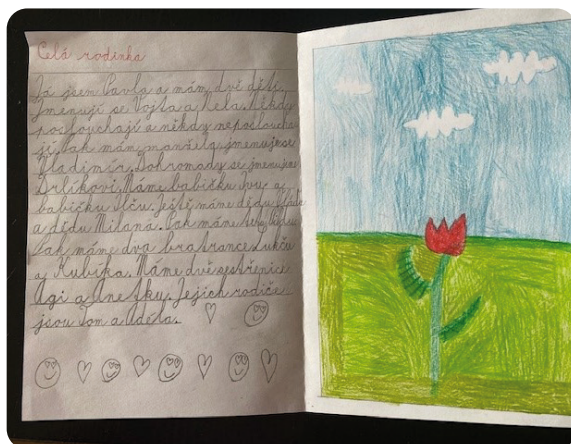 Celá rodinka
Já jsem Pavla a mám dvě děti.
Jmenují se Vojta a Nela. Někdy
poslouchají a někdy neposloucha
jí. Pak mám manžela, jmenuje se
Vladimír. Dohromady se jmenujeme
Drlíkovi. Máme babičku Ivu, aj
babičku Ilču. Ještě máme dědu
a dědu Milana. Pak máme tetu
Pak máme dva bratrance Lukču
aj Kubíka. Máme dvě sestřenice
Agi a Anetku. Jejich rodiče
jsou Tom a Adéla.